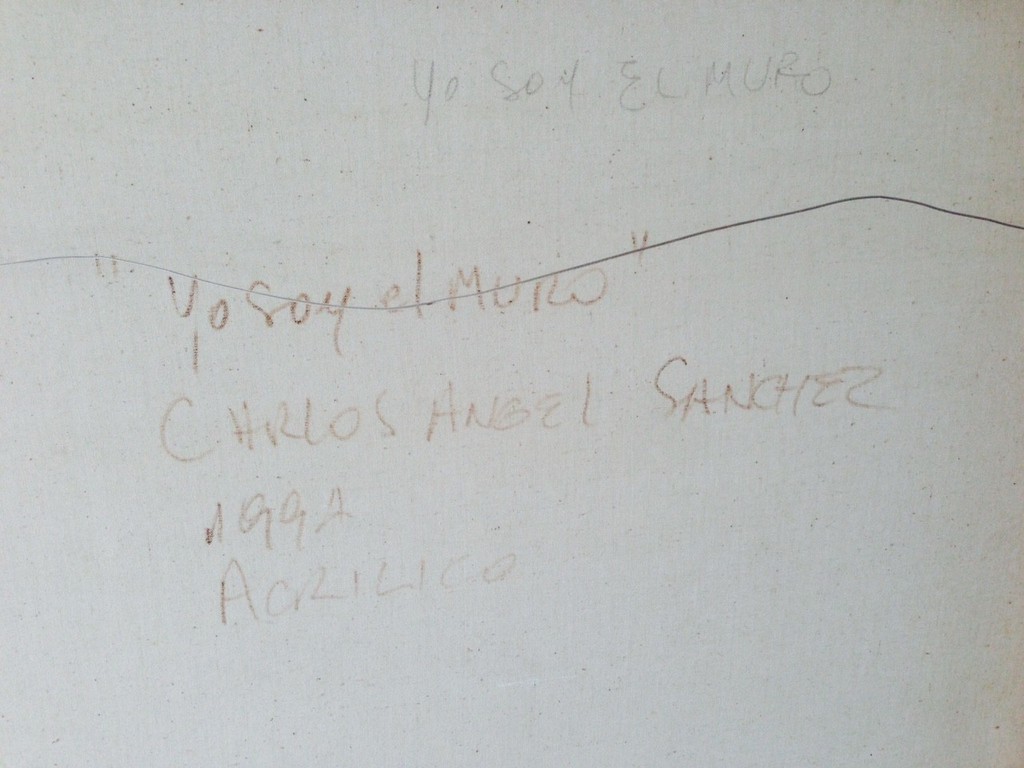 Yo SOY EL MURO
"Yo SOY el MURO"
CARLOS ANGEL SANCHEZ
1991
ACRILICO